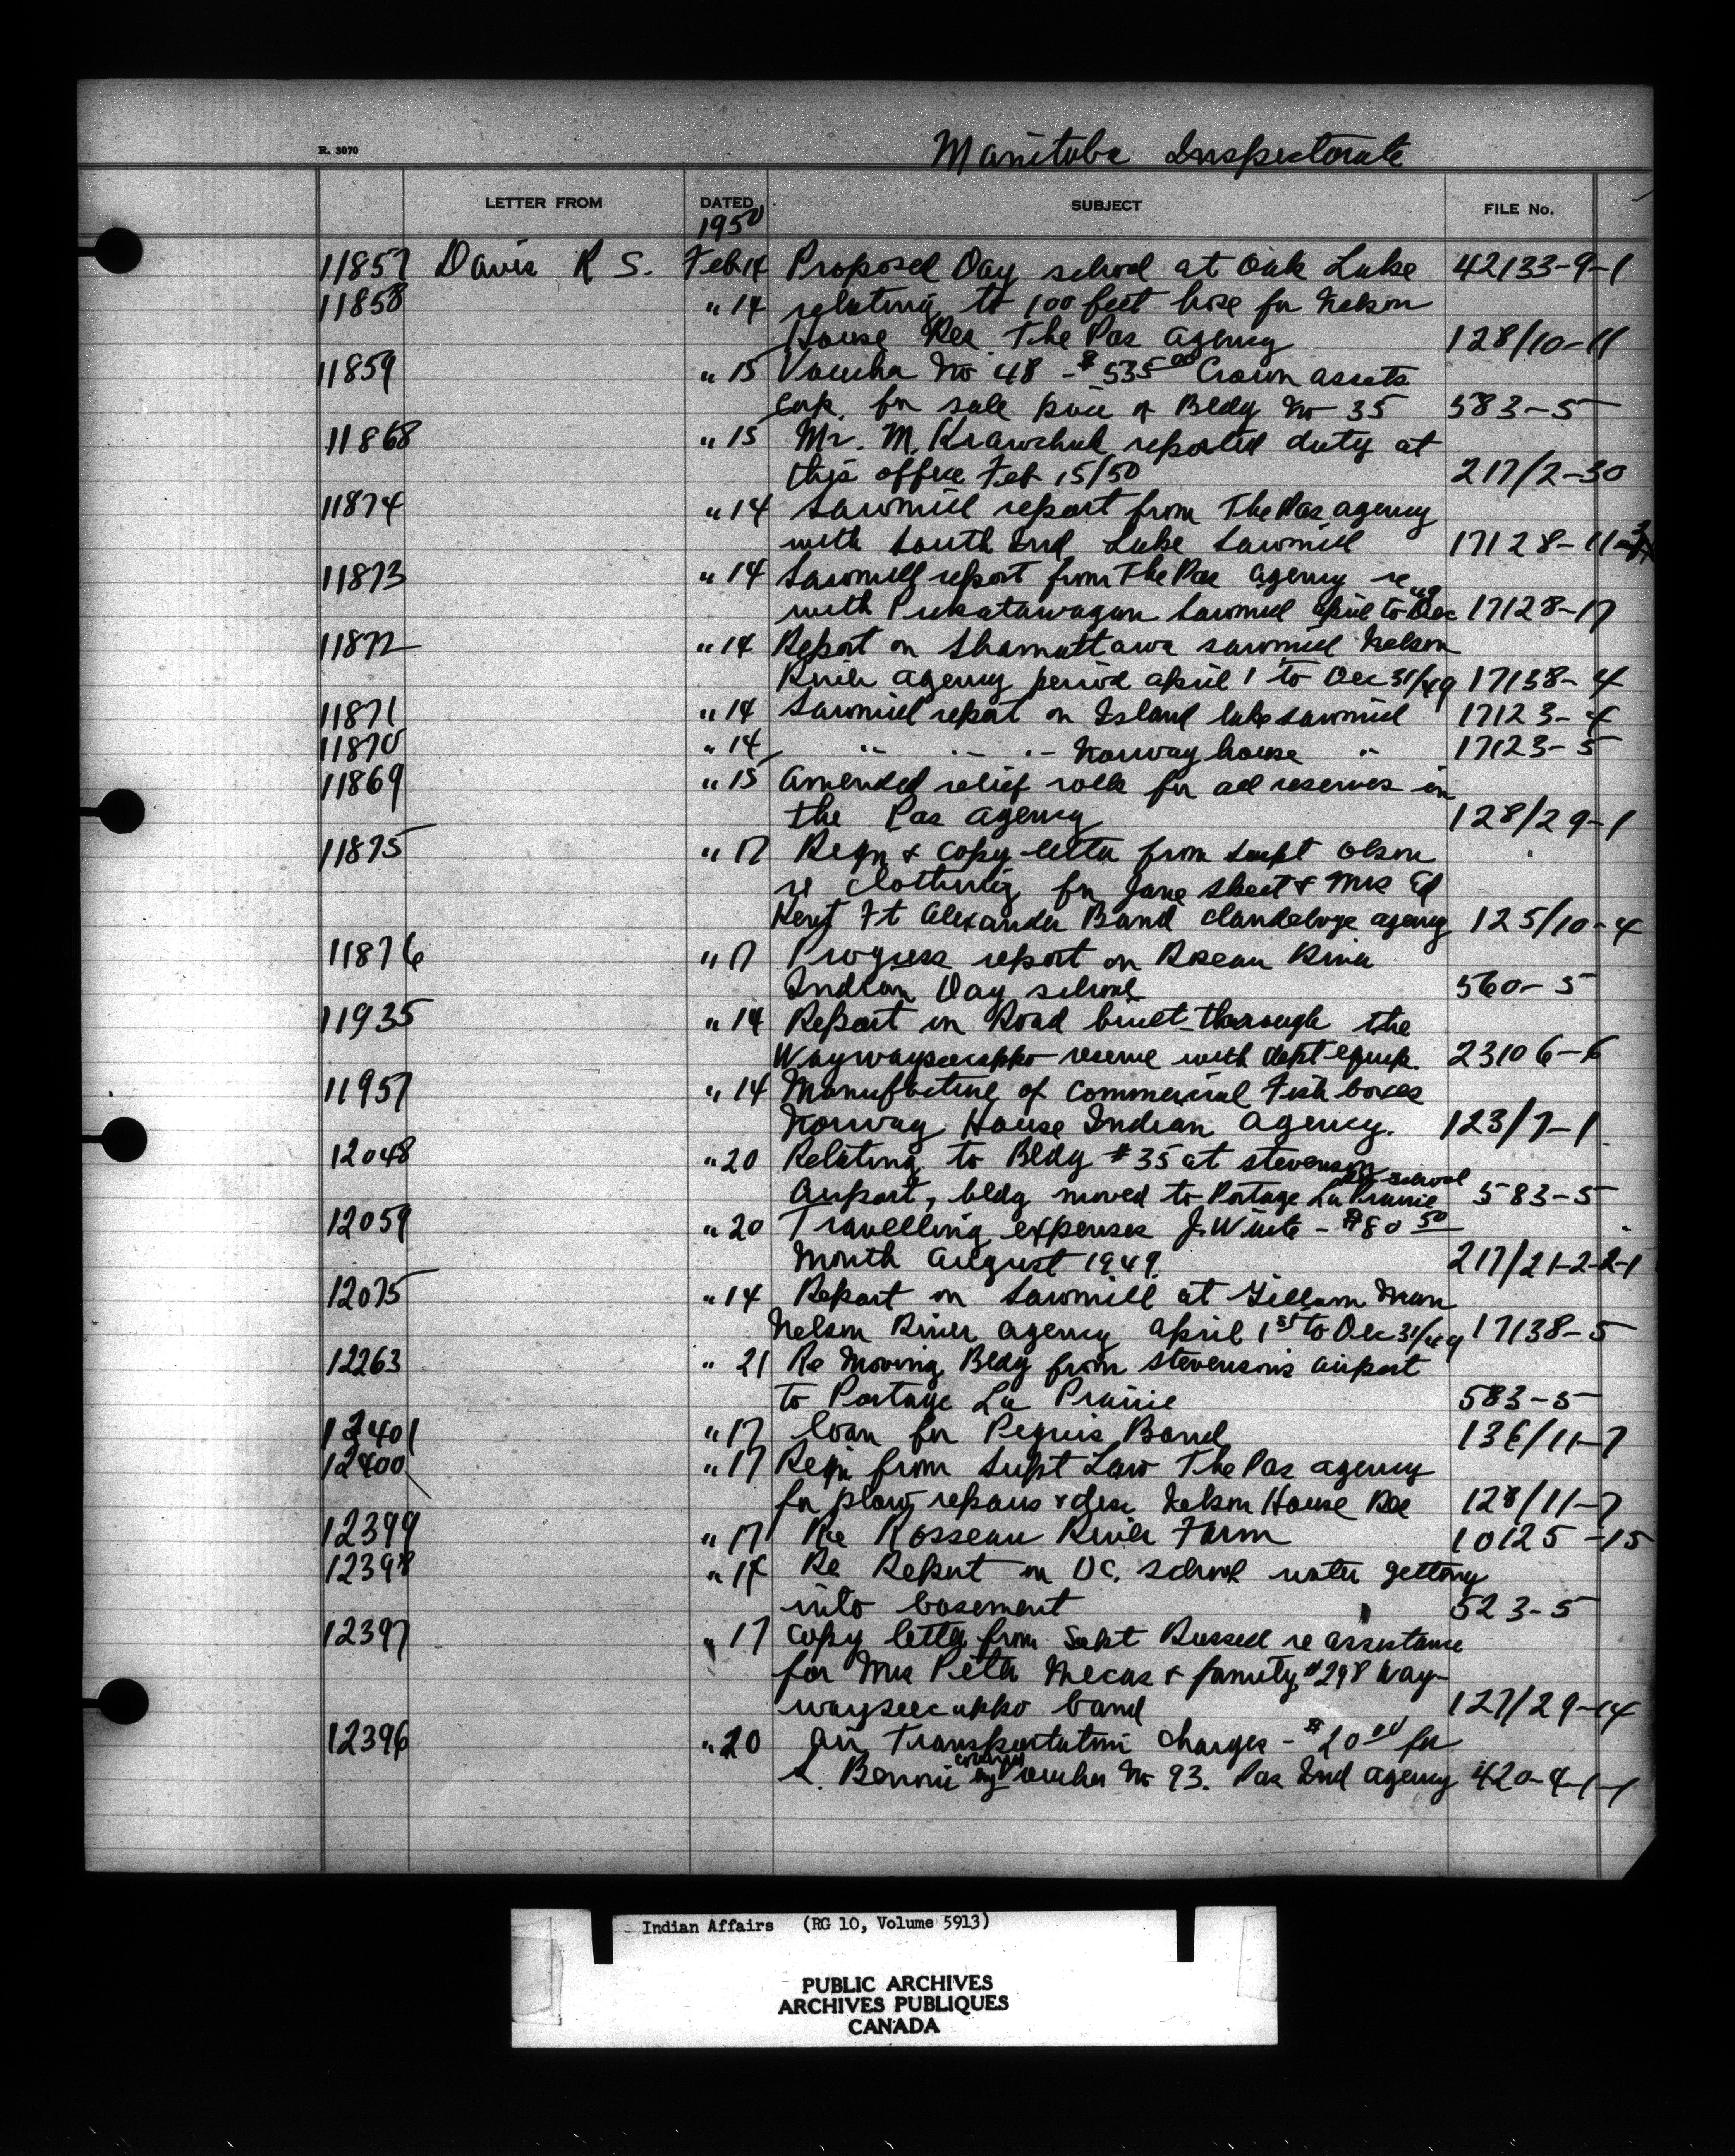 R. 3070
Manitoba Inspectorate
LETTER FROM DATED SUBJECT FILE No.
1950
11857 Davis R S. Feb 14 Proposed Day school at Oak Lake 42133-9-1
11858 " 14 relating to 100 feet hose for Nelson
House Res. The Pas Agency 128/10-11
11859 " 15 Voucher No 48 - $535 00 Crown assets
Corp. for sale price of Bldg No 35 583-5
11868 " 15 Mr. M. Krawchuk reported duty at
this office Feb 15/50 217/2-30
11874 " 14 Sawmill report from The Pas agency
with South Ind Lake Sawmill 17128-11-3
11873 " 14 Sawmill report from The Pas agency re
with Pukatawagan Sawmill April to Dec 49 17128-17
11872 " 14 Report on Shamattawa sawmill Nelson
River agency period April 1 to Dec 31/49 17138-4
11871 " 14 Sawmill report on Island lake sawmill 17123-4
11870 " 14 " " " Norway house " 17123-5
11869 " 15 Amended relief rolls for all reserves in
the Pas Agency 128/29-1
11875 " 17 Reqn & copy letter from Supt Olson
re clothing for Jane Sheet & Mrs Ed
Kent Ft Alexander Band Clandeboye agency 125/10-4
11876 " 17 Progress report on Roseau River
Indian Day school 560-5
11935 " 14 Report on Road built through the
Waywayseecappo reserve with dept equip. 23106-6
11957 " 14 Manufacture of commercial Fish boxes
Norway House Indian Agency. 123/7-1
12048 " 20 Relating to Bldg #35 at Stevenson
Airport, bldg moved to Portage La Prairie school 583-5
12059 " 20 Travelling expenses J. Waite - $80 50
Month August 1949. 217/21-2-2-1
12075 " 14 Report on Sawmill at Gillam Man
Nelson River agency April 1st to Dec 31/49 17138-5
12263 " 21 Re Moving Bldg from Stevensons airport
to Portage La Prairie 583-5
12401 " 17 loan for Peguis Band 136/11-7
12400 " 17 Reqn from Supt Law The Pas agency
for plow repairs & disc Nelson House Res 128/11-7
12399 " 17 Re Rosseau River Farm 10125-15
12398 " 17 Re Report on OC. school water getting
into basement 523-5
12397 " 17 Copy letter from Supt Russell re assistance
for Mrs Peter Mecas & family #298 Way-
wayseecappo band 127/29-14
12396 " 20 Air Transportation charges - $20 00 for
L. Bennie covering Voucher No 93. Pas Ind agency 420-4-1-1
Indian Affairs (RG 10, Volume 5913)
PUBLIC ARCHIVES
ARCHIVES PUBLIQUES
CANADA